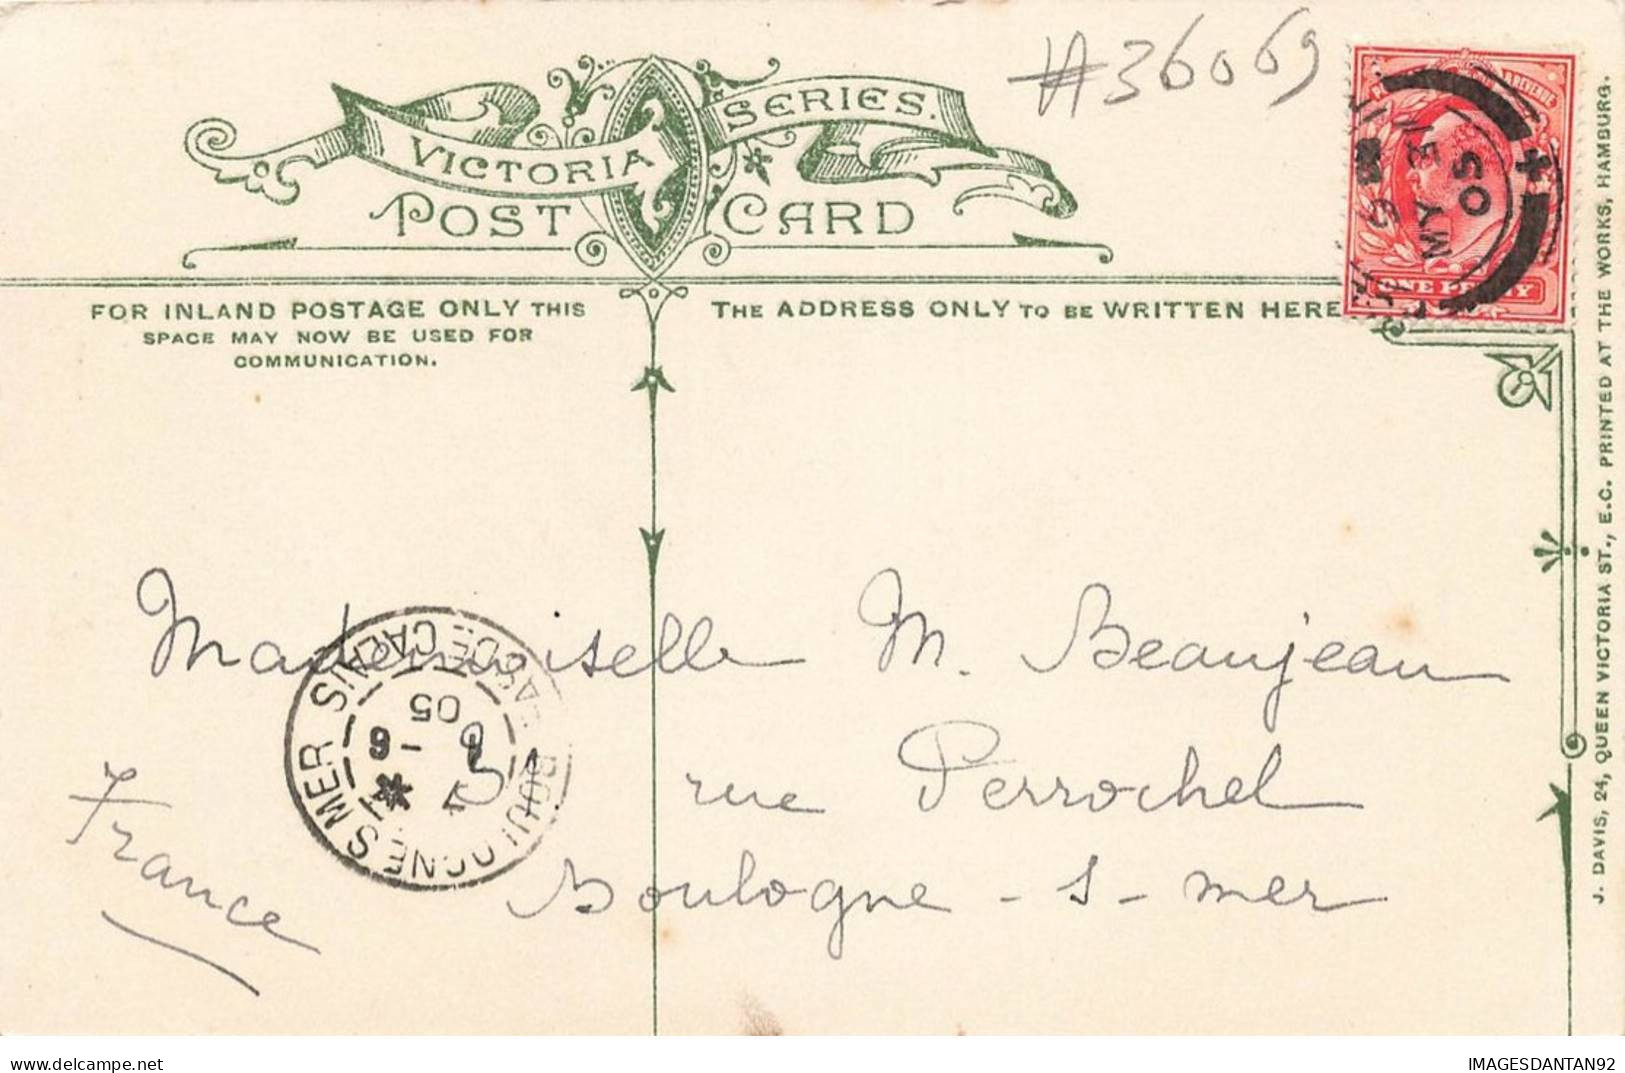 #36069
VICTORIA SERIES.
POST CARD
FOR INLAND POSTAGE ONLY THIS
SPACE MAY NOW BE USED FOR
COMMUNICATION.
THE ADDRESS ONLY TO BE WRITTEN HERE
ONE PENNY
MY 31
05
BOULOGNE S MER PAS DE CALAIS
1 - 6
05
Mademoiselle M. Beaujeau
rue Perrochel
Boulogne - s - mer
France
J. DAVIS, 24, QUEEN VICTORIA ST., E.C. PRINTED AT THE WORKS, HAMBURG.
IMAGESDANTAN92